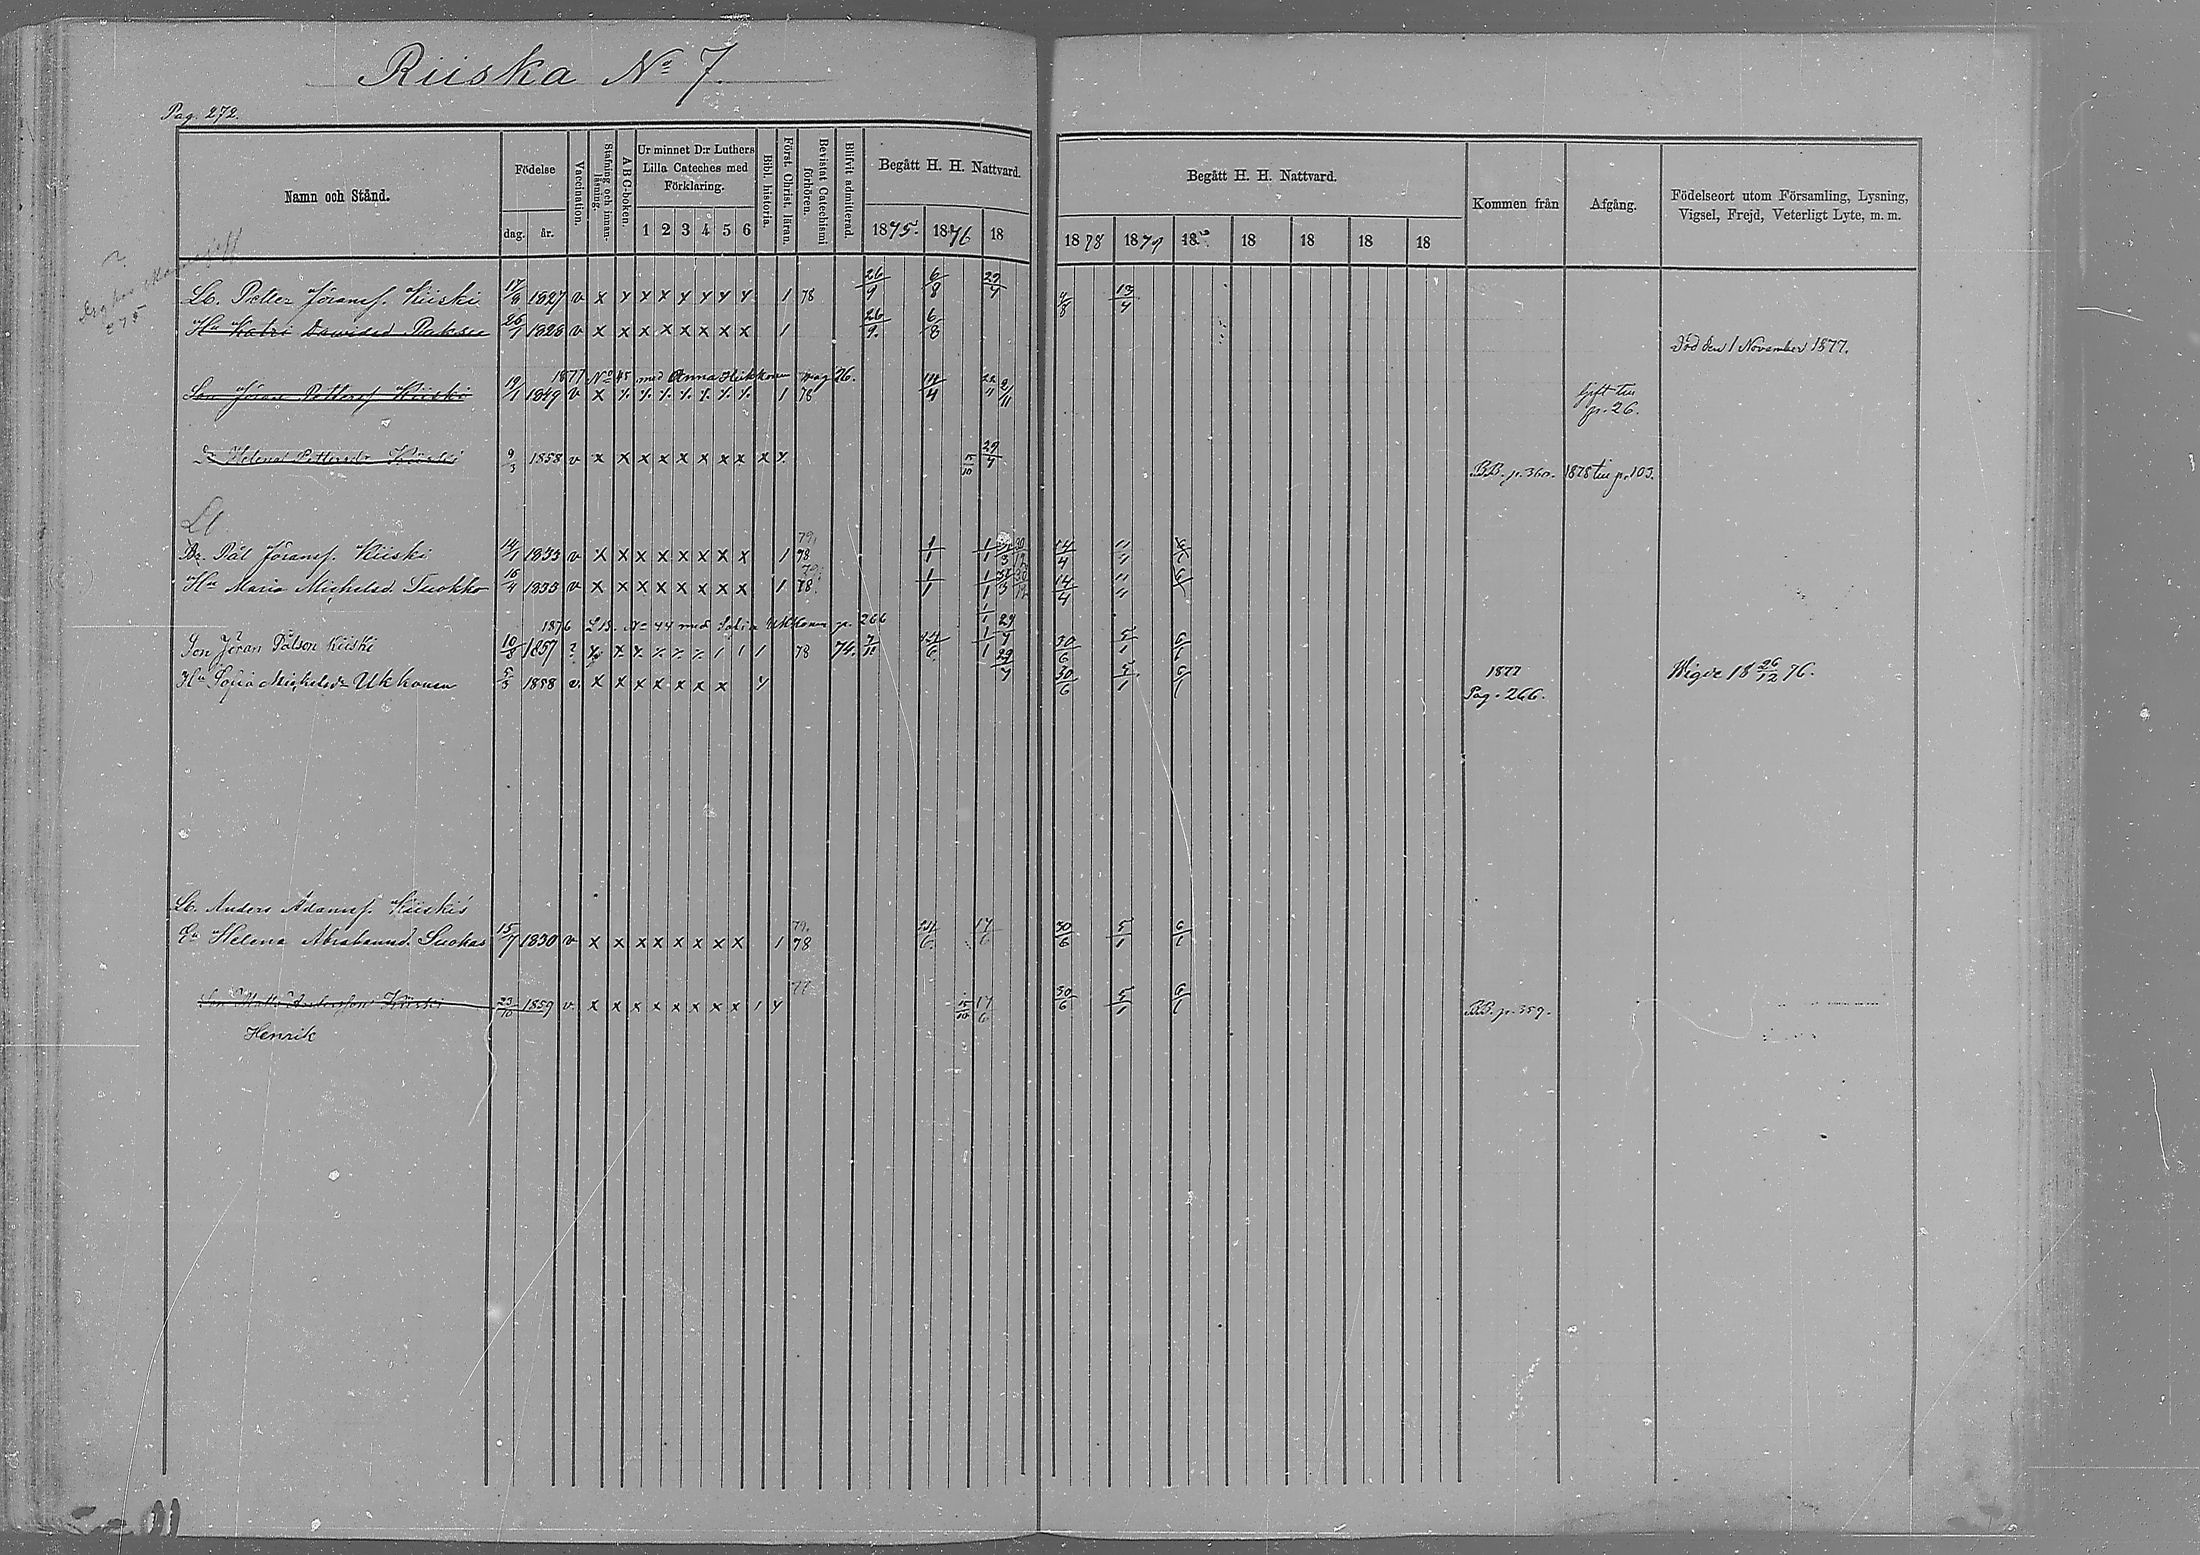 Riiska No 7.
Pag. 272.
Namn och Stånd.
Födelse
dag. år.
Vaccination.
Stafning och innan-läsning.
ABC-boken.
Ur minnet D:r Luthers Lilla Cateches med Förklaring.
1 2 3 4 5 6
Bibl. historia.
Först. Christ. läran.
Bevistat Catechismi förhören.
Blifvit admitterad.
Begått H. H. Nattvard.
1875. 1876 18
Begått H. H. Nattvard.
1878 1879 18 18 18 18 18
Kommen från
Afgång.
Födelseort utom Församling, Lysning, Vigsel, Frejd, Veterligt Lyte, m. m.
275
Lb. Petter Göransf. Kiiski 17/9 1827 v x x x x x x x x 1 78 26/9 6/8 29/4 4/8 13/4
Hu Katri Davidsd Paksu 26/1 1828 v x x x x x x x x 1 26/9 6/8 Död den 1 November 1877.
1877 No 45 med Anna Hukkonen pag 26.
Son Göran Pettersf Kiiski 19/1 1849 v x 1 78 14/4 Gift till p. 26.
Dr Helena Pettersdr Kiiski 9/3 1858 v x x x x x x x x x 15/10 29/4 BB. p. 360. 1878 till p. 103.
Lb
Br. Pål Göransf. Kiiski 14/1 1833 v x x x x x x x x 1 79, 78 1/1 1/1 14/4
Hu Maria Michelsd. Tuokko 16/4 1833 v x x x x x x x x 1 79, 78. 1/1 1/1 14/4
1876 LB. No 44 med Sofia Ukkonen p. 266
Son Göran Pålson Kiiski 10/8 1857 ? 1 1 1 78 74. 24/6 30/6 5/1 6/1
Hu Sofia Michelsdr Ukkonen 5/3 1858 v. x x x x x x x 30/6 5/1 6/1 1877 Pag. 266. Wigde 18 26/12 76.
Lb. Anders Adamsf. Kiiski's
Ea Helena Abrahamsd. Suokas 15/7 1830 v x x x x x x x x 1 79. 78 24/6 17/6 30/6 5/1 6/1
Son Matts Andersson Kiiski 23/10 1859 v. x x x x x x x x 1 77 15/10 17/6 30/6 5/1 6/1 BB. p. 359.
Henrik